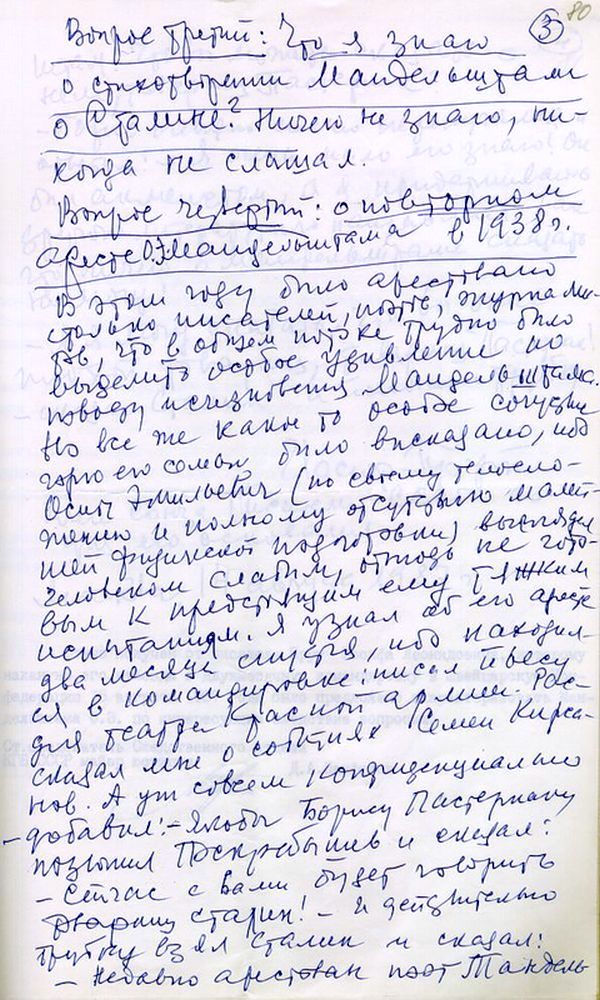 80
Вопрос третий: Что я знаю ③
о стихотворении Мандельштама
о Сталине? Ничего не знаю, ни-
когда не слышал.
Вопрос четвертый: о повторном
аресте О.Э Мандельштама в 1938 г.
В этом году было арестовано
столько писателей, поэтов, журналис-
тов, что в общем потоке трудно было
выделить особое удивление по
поводу исчезновения Мандельштама.
Но все же какое то особое сочувствие
горю его семьи было высказано, ибо
Осип Эмильевич (по своему телосло-
жению и полному отсутствию малей-
шей физической подготовки) выглядел
человеком слабым, отнюдь не гото-
вым к предстоящим ему тяжким
испытаниям. Я узнал об его аресте
два месяца спустя, ибо находил-
ся в командировке: писал пьесу
для театра Красной армии. Рас-
сказал мне о событиях Семен Кирса-
нов. А уж совсем конфиденциально
добавил: - Якобы Борису Пастернаку
позвонил Поскребышев и сказал:
- Сейчас с Вами будет говорить
товарищ Сталин! - И действительно
трубку взял Сталин и сказал:
- Недавно арестован поэт Мандель